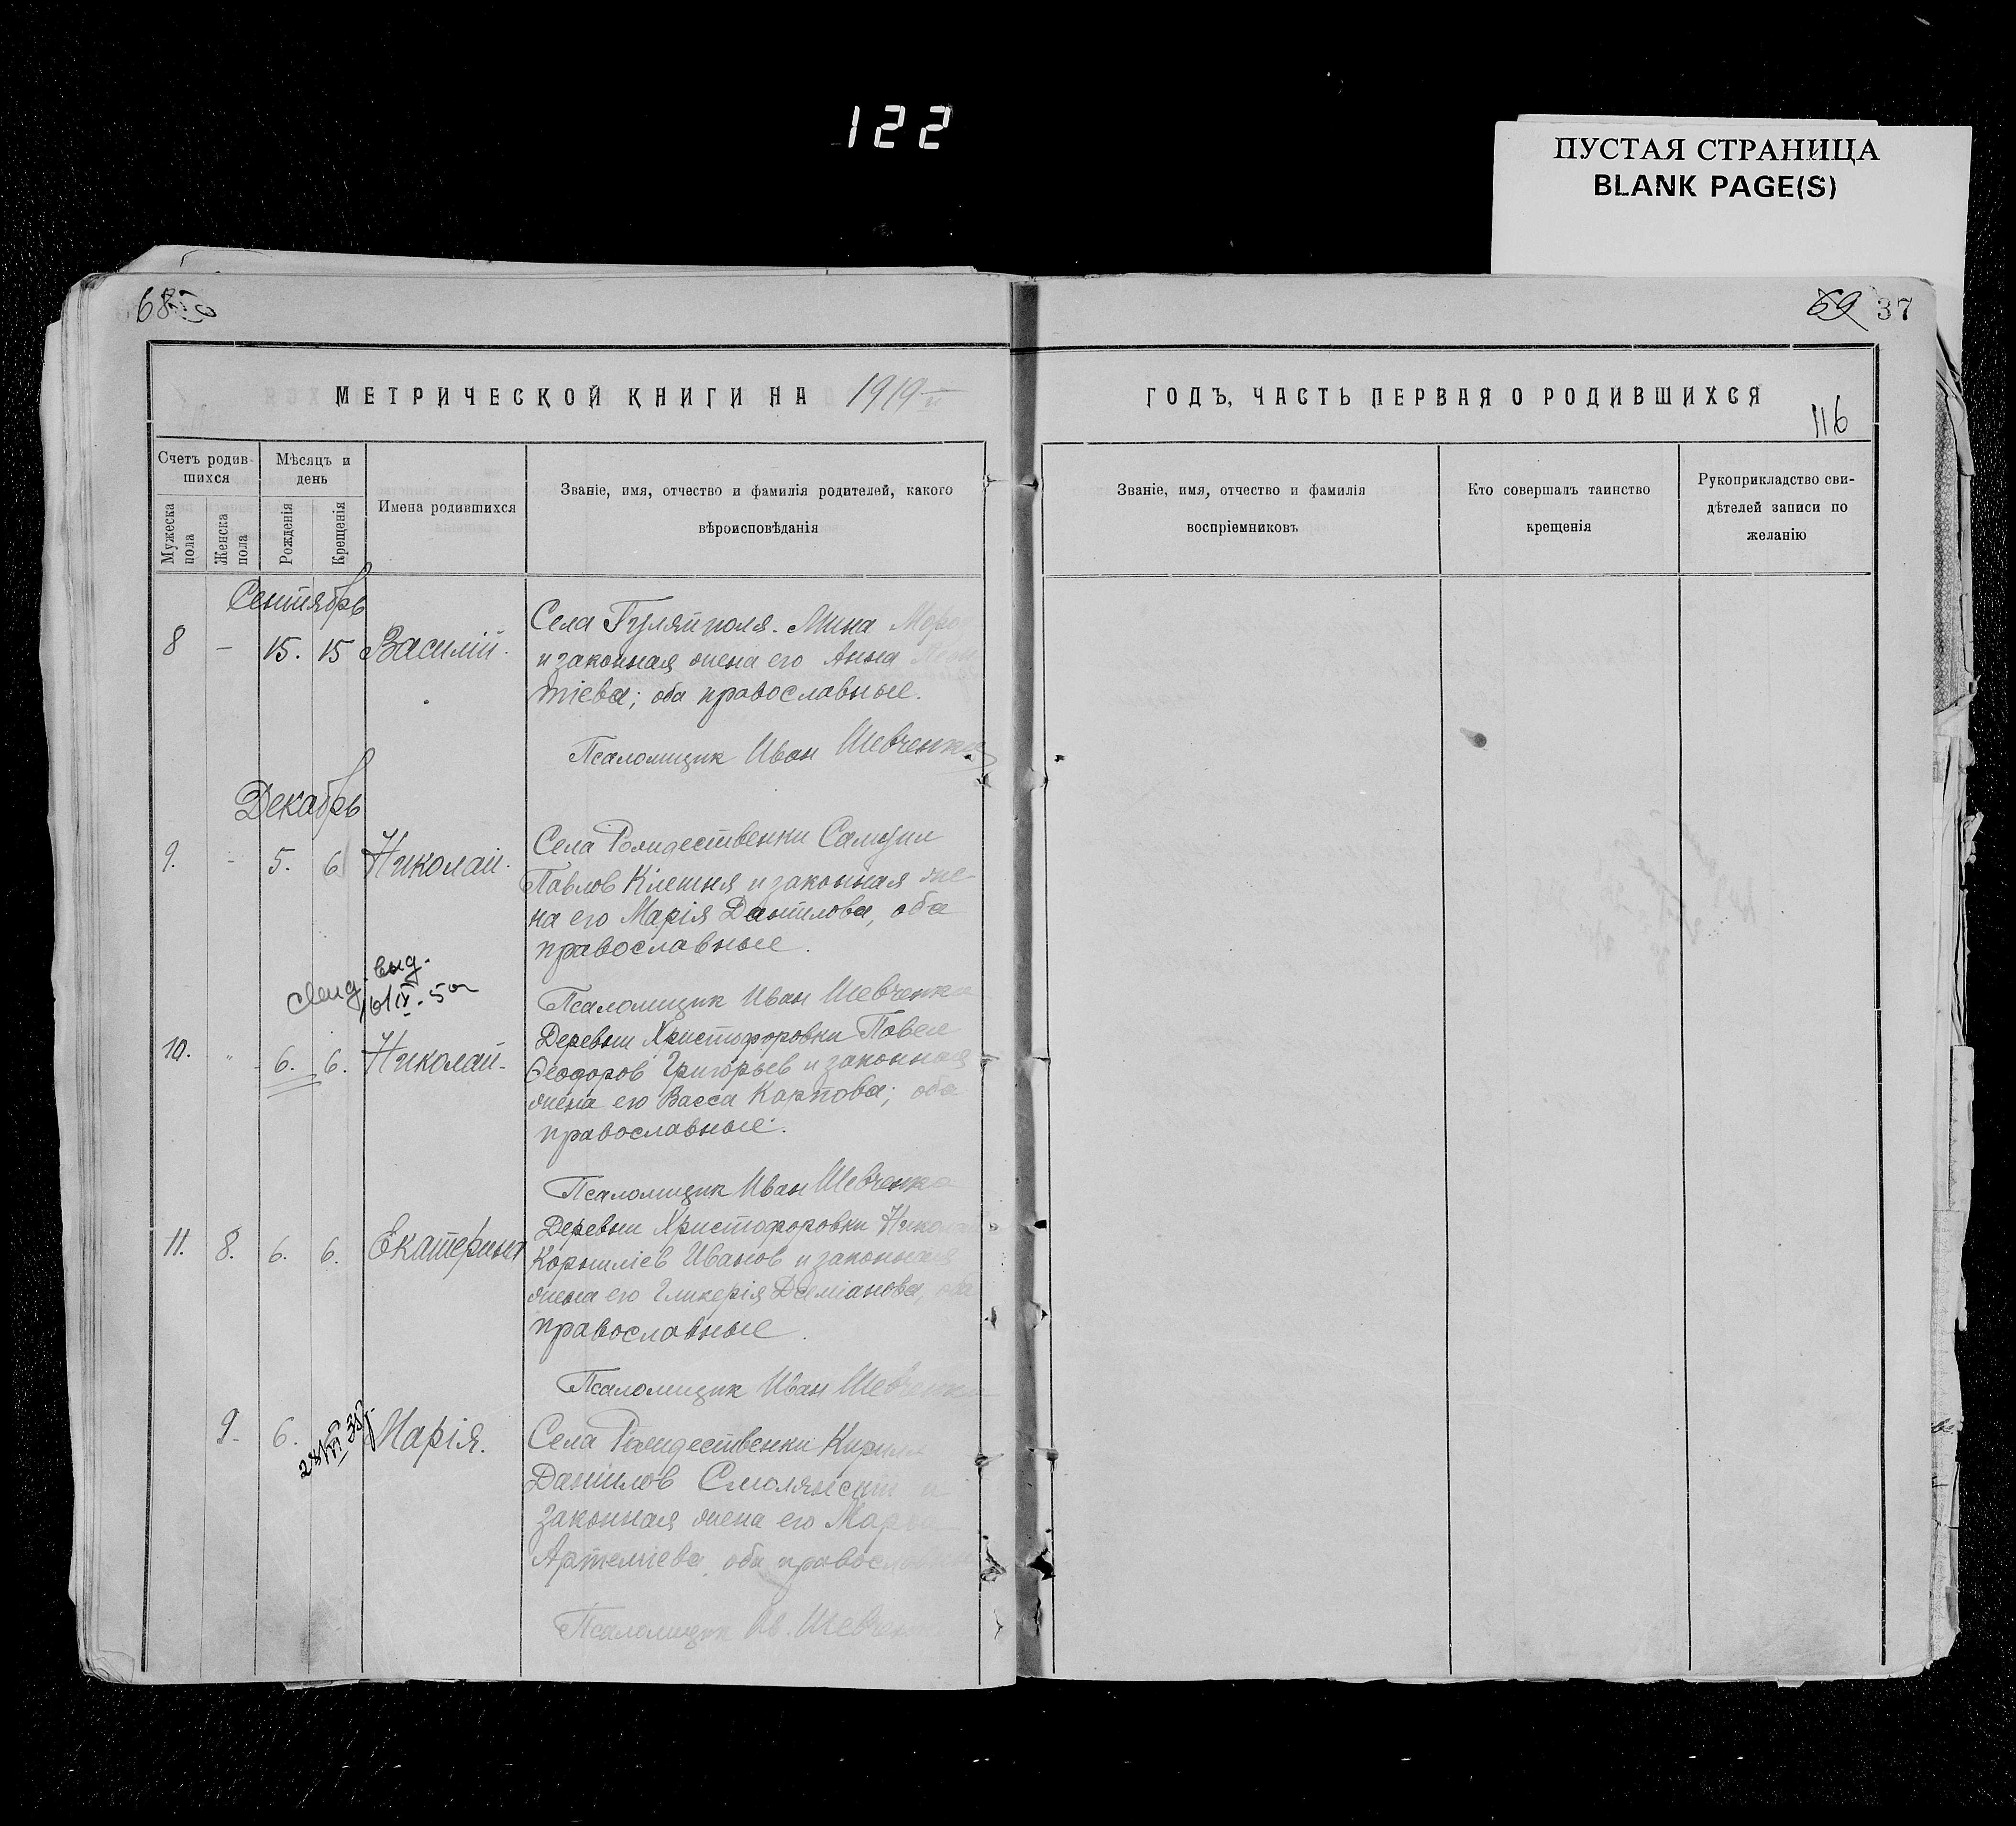 122
ПУСТАЯ СТРАНИЦА
BLANK PAGE(S)
68
69 37
МЕТРИЧЕСКОЙ КНИГИ НА 1919 й
ГОДЪ, ЧАСТЬ ПЕРВАЯ О РОДИВШИХСЯ
116
Счетъ родив-
шихся
Мужеска
пола
Женска
пола
Мѣсяцъ и
день
Рожденія
Крещенія
Имена родившихся
Званіе, имя, отчество и фамилія родителей, какого
вѣроисповѣданія
Званіе, имя, отчество и фамилія
воспріемниковъ
Кто совершалъ таинство
крещенія
Рукоприкладство сви-
дѣтелей записи по
желанію
Сентябрь
8 - 15. 15 Василій.
Села Гуляйполя. Мина
и законная жена его Анна
тіева; оба православные.
Псаломщик Иван Шевченко
Декабрь
9. - 5. 6 Николай.
Села Рождественки
Павлов Клешня и законная же-
на его Марія Данилова, оба
православные.
Псаломщик Иван Шевченко
выд.
10. " 6. 6. Николай.
Деревни Христофоровки Павел
Ѳеодоров Григорьев и законная
жена его Васса Карпова; оба
православные.
Псаломщик Иван Шевченко
11. 8. 6. 6. Екатерина
Деревни Христофоровки Николай
Корниліев Иванов и законная
жена его Гликерія Даміанова, оба
православные.
Псаломщик Иван Шевченко
9. 6. Марія.
Села Рождественки Кирилл
Данилов Смолянскій и
законная жена его
Артеміева, оба православные
Псаломщик Ив. Шевченко